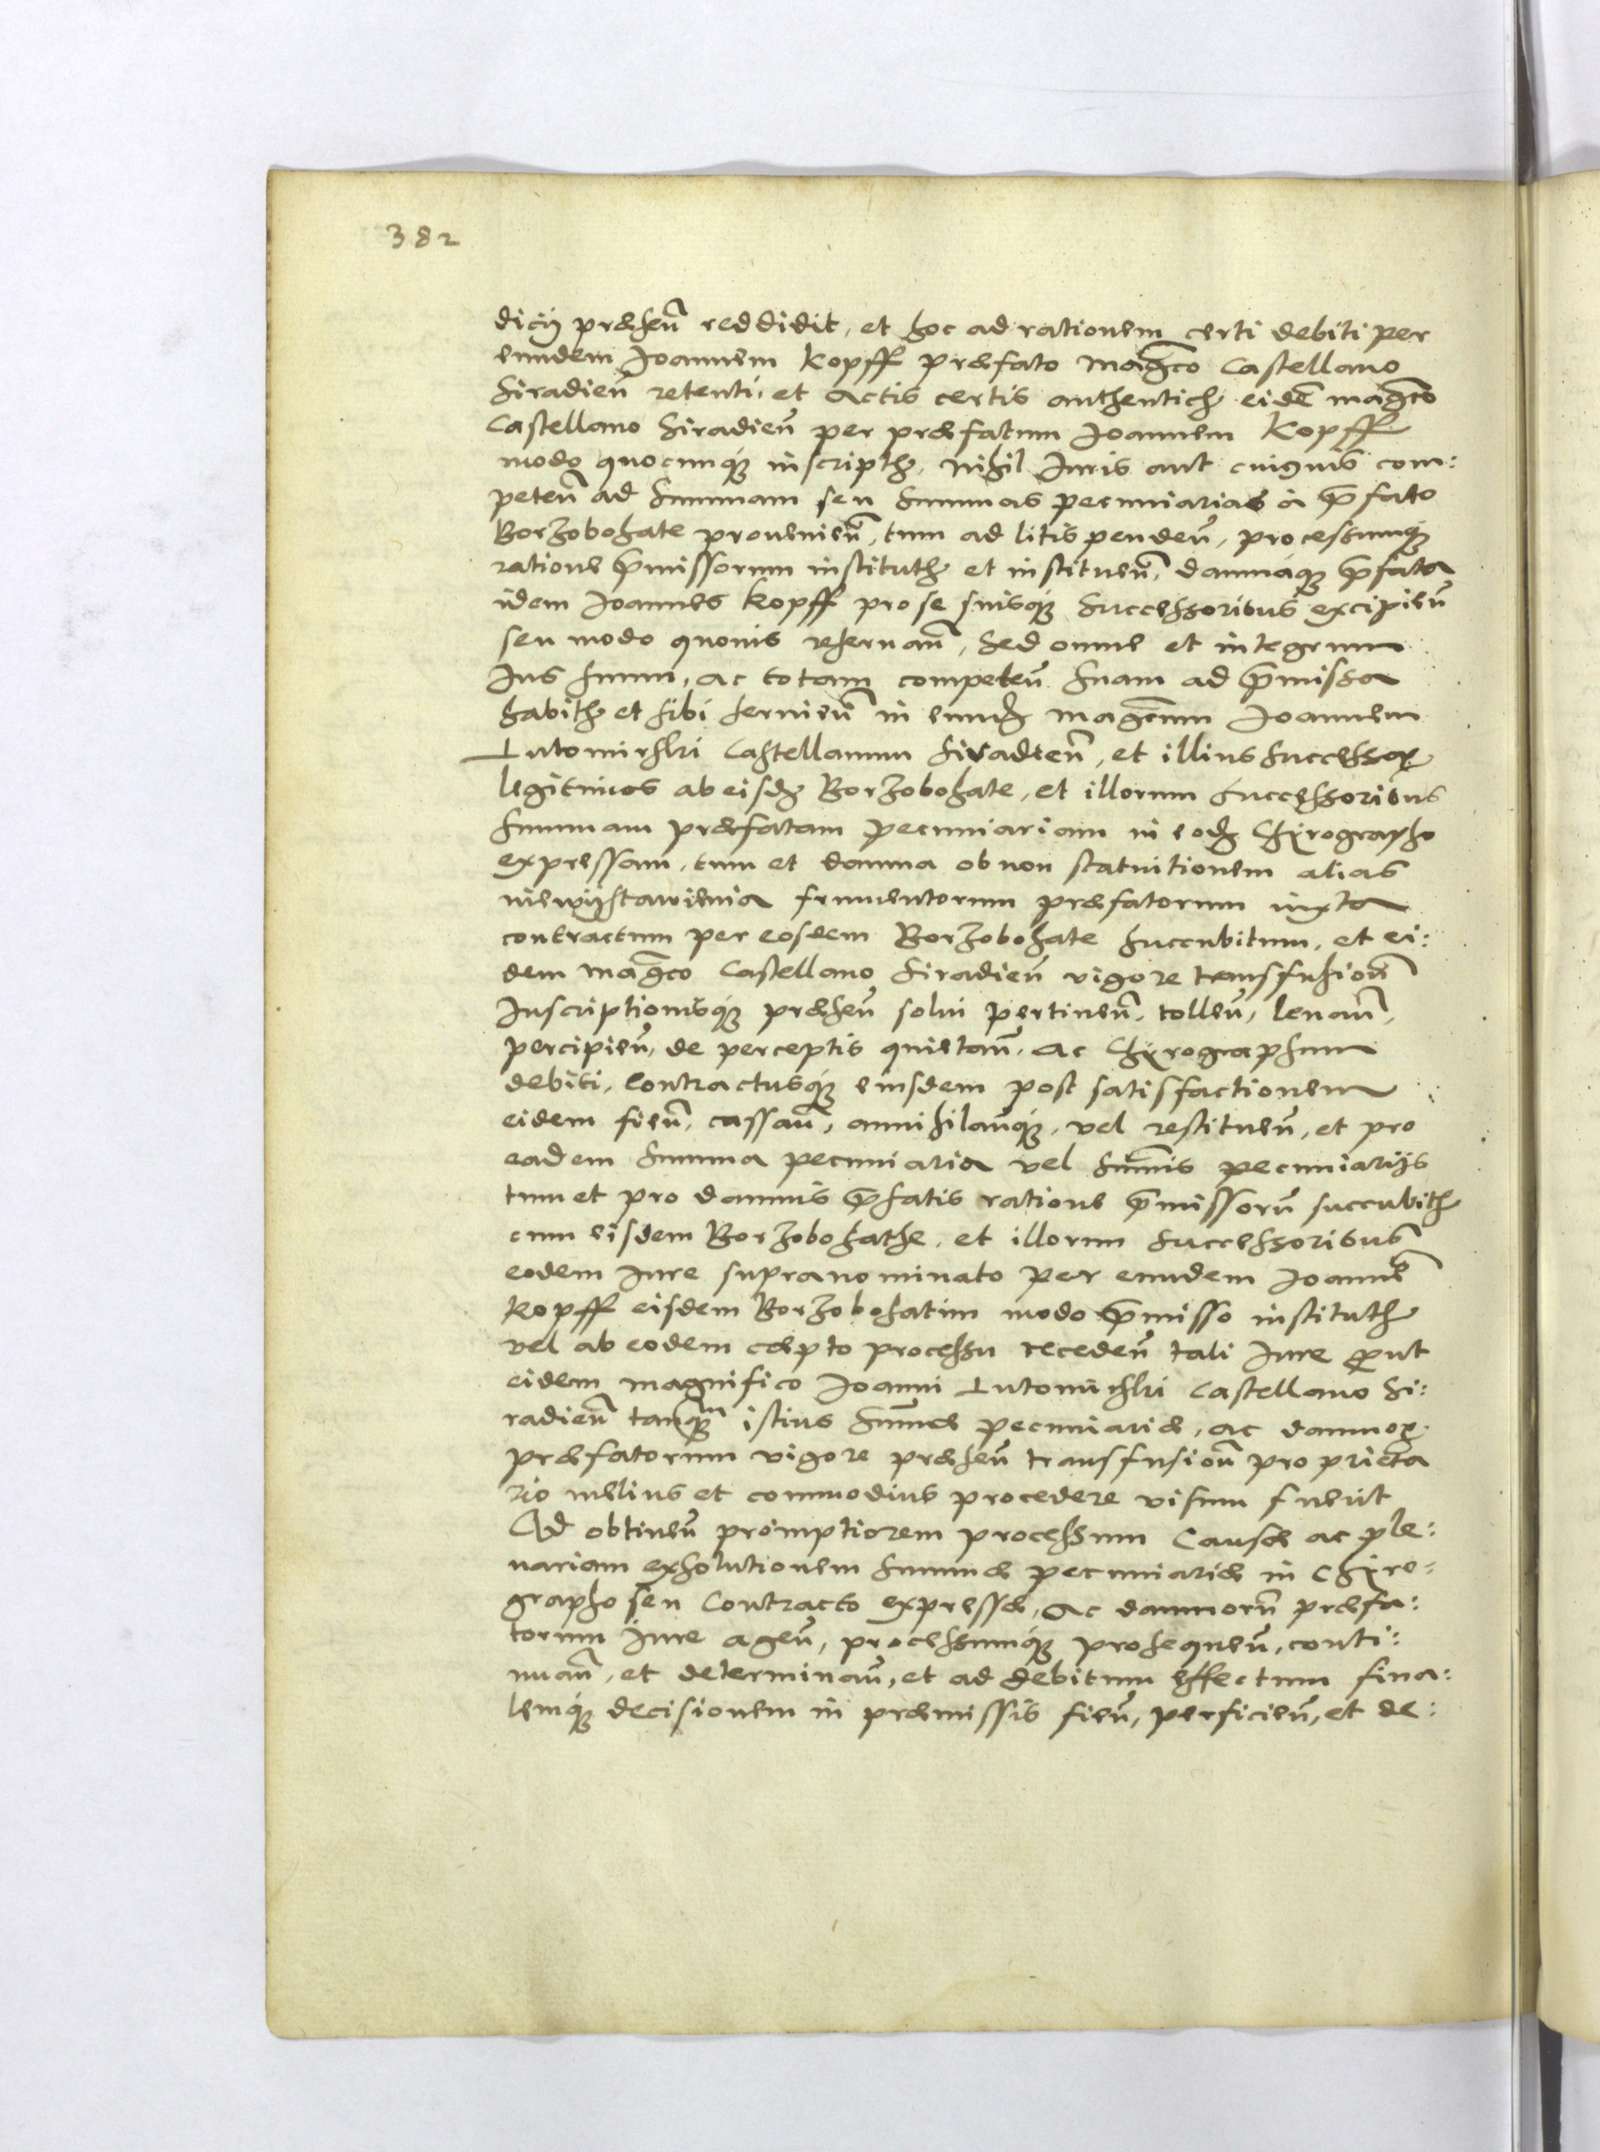 382
dicij præsen̄ reddidit, et hoc ad rationem certi debiti per
eundem Joannem Kopff præfato Magco Castellano
Siradien̄ retenti, et Actis certis authenticis eidē Magco
Castellano Siradien̄ per præfatum Joannem Kopff
modo quocunqꝫ inscriptis, Nihil Juris aut cuiusuis com:
peten̄ ad summam seu summas pecuniarias à p̄fato
Borzobohate prouenien̄, tum ad litis penden̄, processumqꝫ
ratione p̄missorum institutis et instituen̄, damnaqꝫ p̄fata
idem Joannes Kopff pro se suisqꝫ Successoribus excipien̄
seu modo quouis reseruan̄, Sed omne et integrum
Jus suum, ac totam competen̄ suam ad p̄missa
habitis et sibi seruien̄ in eundē Magcum Joannem
Lutomirshki Castellanum Siradien̄, et illius Successoꝝ
legitimos ab eisdē Borzobohate, et illorum Successoribus
summam præfatam pecuniariam in eodē Chÿrographo
expressam, tum et damna ob non statuitionem alias
niewÿstawienia frumentorum præfatorum iuxta
contractum per eosdem Borzobohate succubitum, et ei:
dem Magco Castellano Siradien̄ vigore transfusion̄
Inscriptionisqꝫ præsen̄ solui pertinen̄, tollen̄, leuan̄,
percipien̄, de perceptis quietan̄, ac Chÿrographum
debiti, contractusqꝫ eiusdem post satisfactionem
eidem fien̄, cassan̄, annihilan̄qꝫ, vel restituen̄, et pro
eadem summa pecuniaria vel sum̄is pecuniarijs
tum et pro damnis p̄fatis ratione p̄missorū succubitis
cum eisdem Borzobohathe, et illorum Successoribus
eodem Jure supranominato per eundem Joannē
Kopff eisdem Borzobohatim modo p̄misso institutis
vel ab eodem cæpto processu receden̄ tali Jure ꝓut
eidem magnifico Joanni Lutomirshki Castellano Si:
radien̄ tanqꝫm istius Sum̄æ pecuniariæ, ac damnoꝝ
præfatorum vigore præsen̄ transfusion̄ proprieta
rio melius et commodius procedere visum fuerit
Ad obtinen̄ promptiorem processum Causæ ac ple:
nariam exsolutionem summæ pecuniariæ in Chÿro:
grapho seu Contracto expressæ, Ac damnorū præfa:
torum Jure agen̄, processumqꝫ prosequen̄, conti:
nuan̄, et determinan̄, et ad debitum effectum fina:
lemqꝫ decisionem in præmissis fien̄, perficien̄, et de: